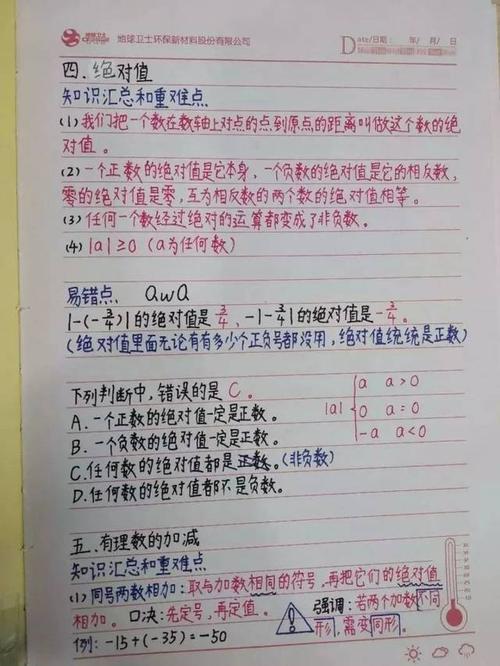 地球卫士环保新材料股份有限公司
Date/日期: 年/ 月/ 日
四、绝对值
知识汇总和重难点
(1) 我们把一个数在数轴上对点的点到原点的距离叫做这个数的绝
对值。
(2) 一个正数的绝对值是它本身,一个负数的绝对值是它的相反数,
零的绝对值是零,互为相反数的两个数的绝对值相等。
(3) 任何一个数经过绝对的运算都变成了非负数。
(4) |a|≥0 (a为任何数)
易错点、QwQ
|-(-3/4)| 的绝对值是 3/4、-|-3/4| 的绝对值是 -3/4。
(绝对值里面无论有有多少个正负号都没用,绝对值统统是正数)
下列判断中,错误的是 C。
A. 一个正数的绝对值一定是正数。
B. 一个负数的绝对值一定是正数。
C. 任何数的绝对值都是正数。(非负数)
D. 任何数的绝对值都不是负数。
|a| { a a>0
0 a=0
-a a<0
五、有理数的加减
知识汇总和重难点
(1) 同号两数相加:取与加数相同的符号,再把它们的绝对值
相加。 口决:先定号,再定值。
例: -15+(-35)=-50
强调:若两个加数不同
形,需变同形。